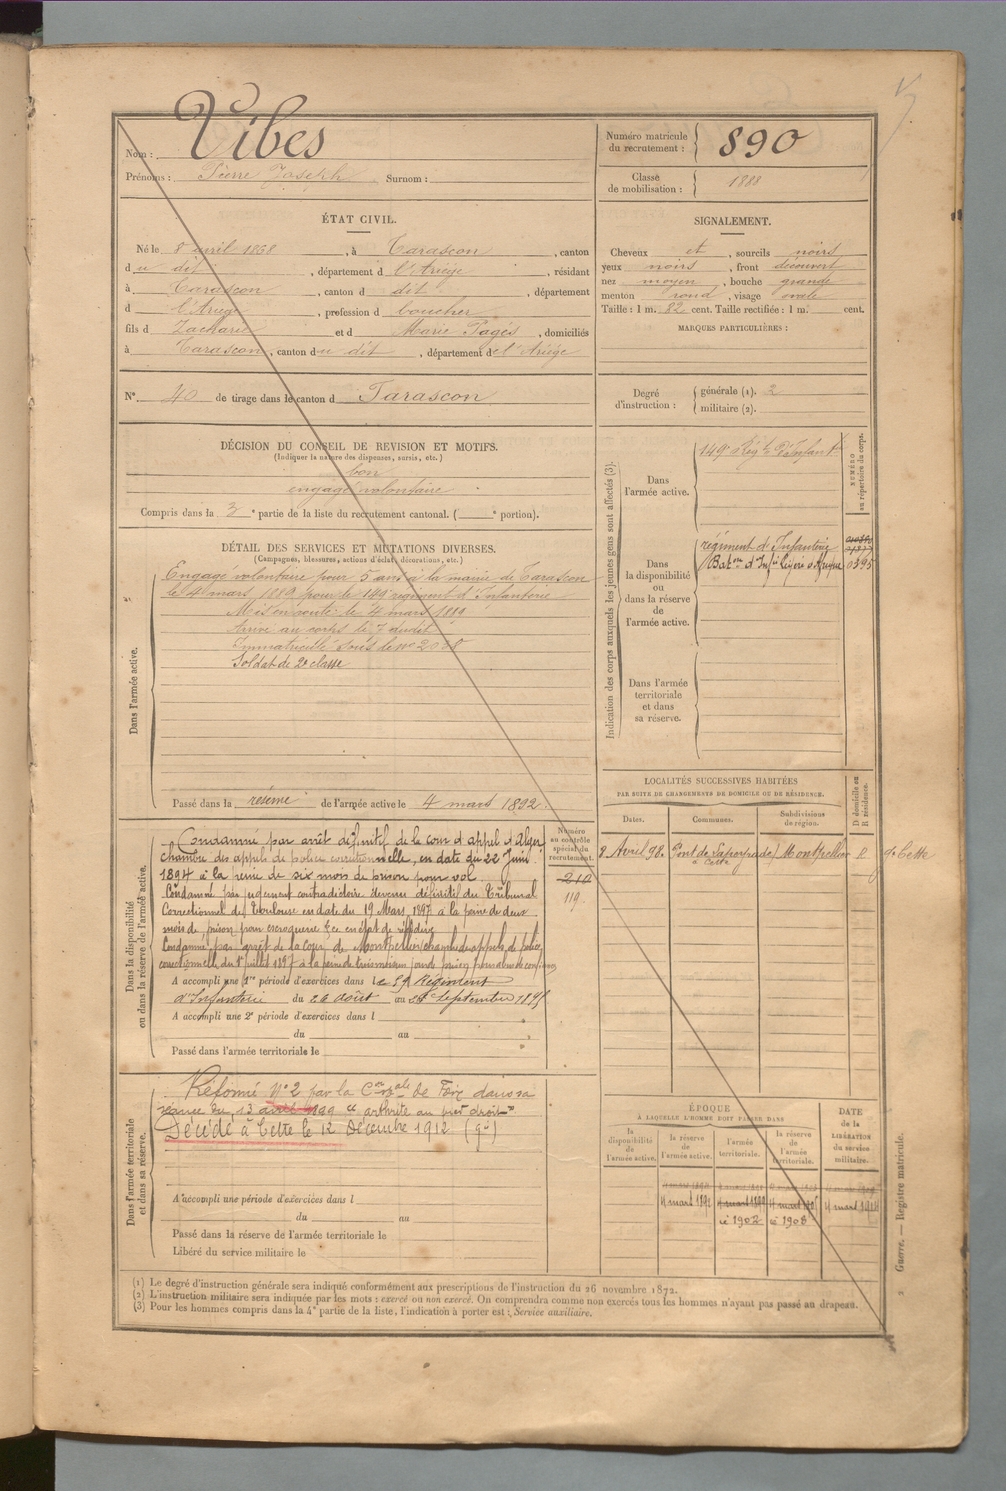 Nom : Vibes
Prénoms : Pierre Joseph Surnom :
Numéro matricule du recrutement : 890
Classe de mobilisation : 1888
ÉTAT CIVIL.
Né le 8 avril 1868, à Tarascon, canton
du dit, département d l'Ariège, résidant
à Tarascon, canton d dit, département
d l'Ariège, profession d boucher
fils d Zacharie et d Marie Pagès, domiciliés
à Tarascon, canton du dit, département de l'Ariège
N° 40 de tirage dans le canton d Tarascon
SIGNALEMENT.
Cheveux et, sourcils noirs
yeux noirs, front découvert
nez moyen, bouche grande
menton rond, visage ovale
Taille : 1 m. 82 cent. Taille rectifiée : 1 m. cent.
MARQUES PARTICULIÈRES :
Degré d'instruction : générale (1). 2
militaire (2).
DÉCISION DU CONSEIL DE REVISION ET MOTIFS.
(Indiquer la nature des dispenses, sursis, etc.)
bon
engagé volontaire
Compris dans la 3e partie de la liste du recrutement cantonal. ( e portion).
DÉTAIL DES SERVICES ET MUTATIONS DIVERSES.
(Campagnes, blessures, actions d'éclat, décorations, etc.)
Dans l'armée active.
Engagé volontaire pour 5 ans à la mairie de Tarascon
le 4 mars 1889 pour le 149e régiment d'Infanterie
Mis en route le 4 mars 1889
Arrivé au corps le 7 dudit
Immatriculé sous le n°
Soldat de 2e classe
Passé dans la réserve de l'armée active le 4 mars 1892
Indication des corps auxquels les jeunes gens sont affectés (3).
NUMÉRO au répertoire du corps.
Dans l'armée active.
149e Régt d'Infantie
Dans la disponibilité ou dans la réserve de l'armée active.
régiment d'Infanterie
Baton d'Infie légère d'Afrique 0395
Dans l'armée territoriale et dans sa réserve.
Dans la disponibilité ou dans la réserve de l'armée active.
Numéro au contrôle spécial du recrutement.
210
119
Condamné par arrêt définitif de la cour d'appel d'Alger
chambre des appels de police correctionnelle, en date du 22 Juin
1894 à la peine de six mois de prison pour vol.
Condamné par jugement contradictoire devenu définitif du Tribunal
Correctionnel de Toulouse en date du 19 Mars 1897 à la peine de deux
mois de prison pour escroquerie
Condamné par arrêt de la Cour de Montpellier, chambre des appels de police
correctionnelle, du 1er juillet 1897 à la peine de
A accompli une 1re période d'exercices dans le 59e Régiment
d'Infanterie du 26 août au 22 Septembre 1895
A accompli une 2e période d'exercices dans l
du au
Passé dans l'armée territoriale le
LOCALITÉS SUCCESSIVES HABITÉES
PAR SUITE DE CHANGEMENTS DE DOMICILE OU DE RÉSIDENCE.
Dates. Communes. Subdivisions de région. D domicile ou R résidence.
8 Avril 98. Pont de à Cette Montpellier R Cette
Dans l'armée territoriale et dans sa réserve.
Réformé N° 2 par la Con de Foix dans sa
séance du 13 avril 1899 "arthrite au pied droit"
Décédé à Cette le 12 Décembre 1912
A accompli une période d'exercices dans l
du au
Passé dans la réserve de l'armée territoriale le
Libéré du service militaire le
ÉPOQUE
À LAQUELLE L'HOMME DOIT PASSER DANS
la disponibilité de l'armée active. la réserve de l'armée active. l'armée territoriale. la réserve de l'armée territoriale. DATE de la LIBÉRATION du service militaire.
4 mars 1892 4 mars 1899
1902 1908
Guerre. — Registre matricule.
(1) Le degré d'instruction générale sera indiqué conformément aux prescriptions de l'instruction du 26 novembre 1872.
(2) L'instruction militaire sera indiquée par les mots : exercé ou non exercé. On comprendra comme non exercés tous les hommes n'ayant pas passé au drapeau.
(3) Pour les hommes compris dans la 4e partie de la liste, l'indication à porter est : Service auxiliaire.